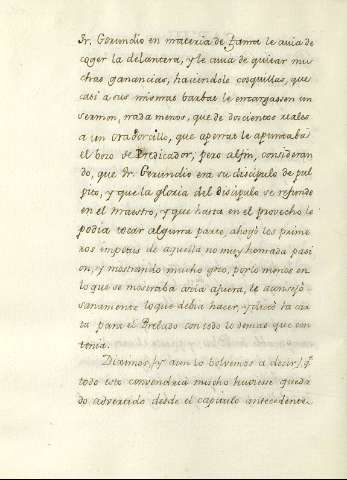 Fr. Gerundio en materia de fama le avia de
coger la delantera, y le avia de quitar mu
chas ganancias, haciendole cosquillas, que
casi a sus mismas barbas le encargassen un
sermon, nada menos, que de docientos reales
a un oradorcillo, que apenas le apuntaba
el bozo de Predicador; pero alfin, consideran
do, que Fr. Gerundio era su discipulo de pul
pito, y que la gloria del discipulo se refunde
en el maestro, y que hasta en el provecho le
podia tocar alguna parte, ahogò los prime
ros impetus de aquella no muy honrada pasi
on, y mostrando mucho gozo, por lo menos en
lo que se mostraba azia afuera, le aconsejò
sanamente lo que debia hacer, y dictò la car
ta para el Prelado con todo lo demas que con
tenia.
Diximos, (y aun lo bolvemos a decir) q̃
todo esto convendria mucho huviesse queda
do advertido desde el capitulo antecedente.